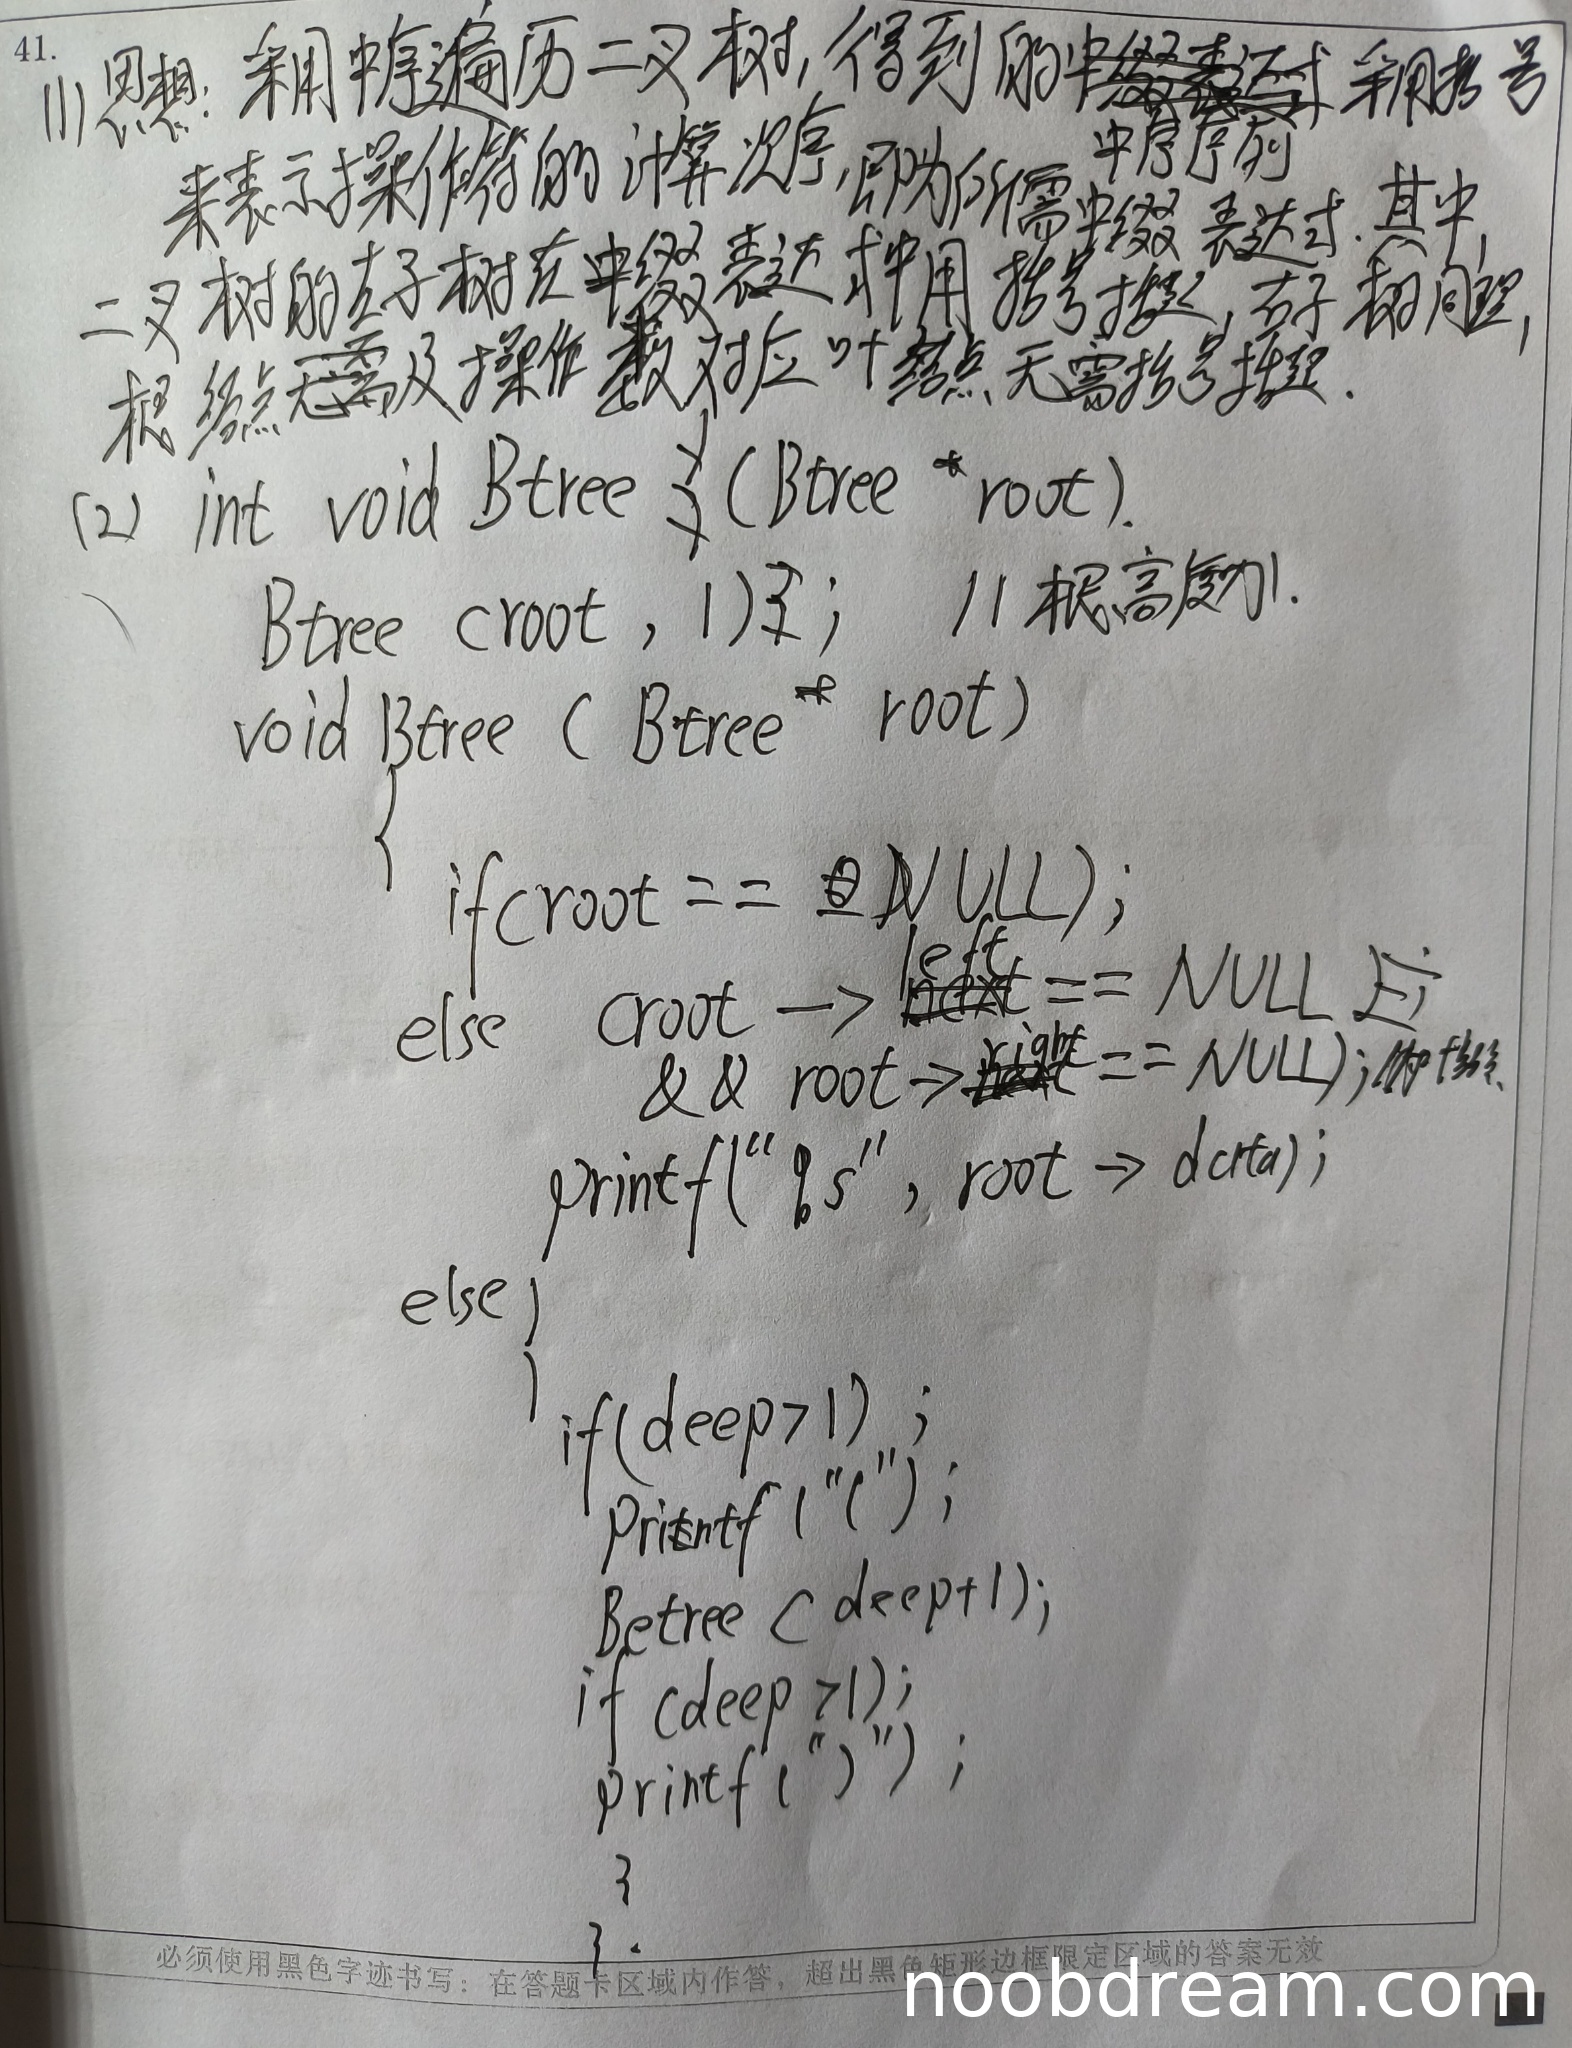 41.
(1)思想:采用中序遍历二叉树,得到的中序序列采用括号
来表示操作符的计算次序,即为所需中缀表达式.其中,
二叉树的左子树在中缀表达式中用括号括起,右子树同理,
根结点及操作数对应叶结点无需括号括起.
(2) int void Btree (Btree *root).
Btree (root, 1)}; //根高度为1.
void Btree ( Btree* root)
{
if(root == NULL);
else (root -> left == NULL
&& root -> right == NULL);
printf("%s", root -> data);
else
{
if(deep>1) ;
Printf ("(");
Betree ( deep+1);
if (deep >1);
printf (")") ;
}
}.
必须使用黑色字迹书写:在答题卡区域内作答,超出黑色矩形边框限定区域的答案无效
noobdream.com